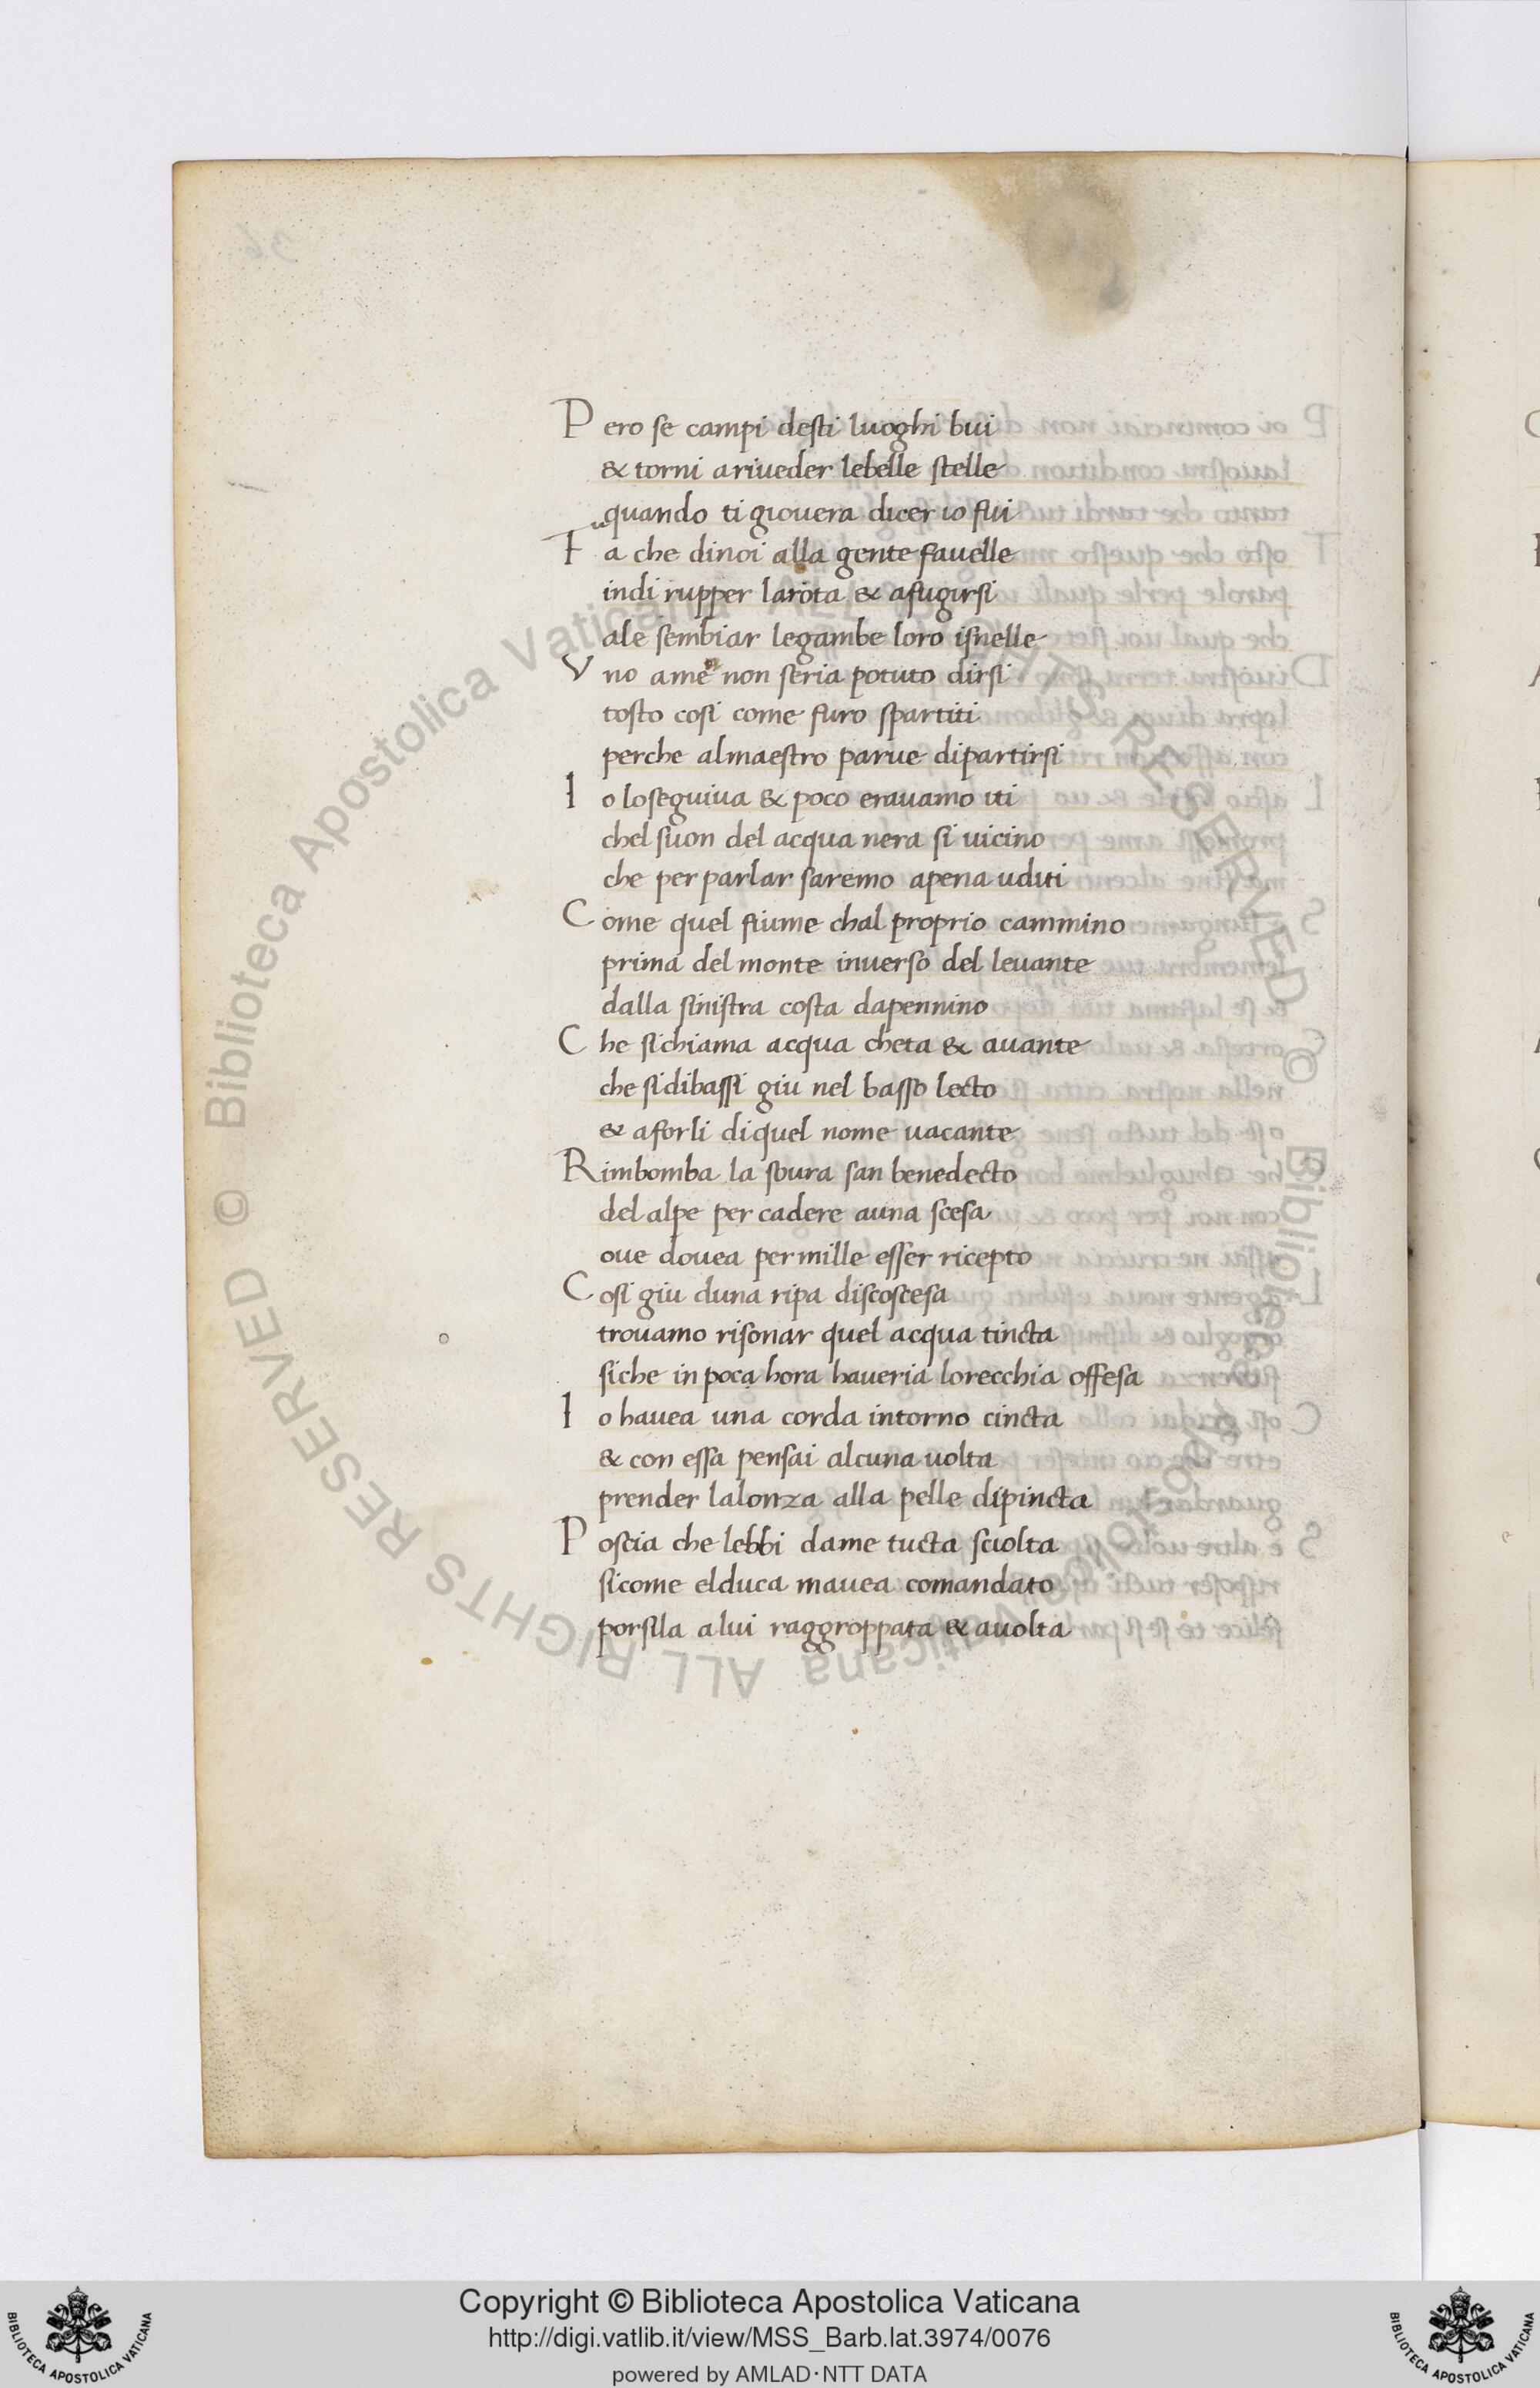 Pero se campi desti luoghi bui
& torni ariueder lebelle stelle
quando ti giouera dicer io fui
Fa che dinoi alla gente fauelle
indi rupper larota & afugirsi
ale sembiar legambe loro isnelle
Vno ame non seria potuto dirsi
tosto cosi come furo spartiti
perche almaestro parue dipartirsi
Io loseguiua & poco erauamo iti
chel suon del acqua nera si uicino
che per parlar saremo apena uditi
Come quel fiume chal proprio cammino
prima del monte inuerso del leuante
dalla sinistra costa dapennino
Che sichiama acqua cheta & auante
che sidibassi giu nel basso lecto
& aforli diquel nome uacante
Rimbomba la soura san benedecto
del alpe per cadere auna scesa
oue douea per mille esser ricepto
Cosi giu duna ripa discoscesa
trouamo risonar quel acqua tincta
siche in poca hora haueria lorecchia offesa
Io hauea una corda intorno cincta
& con essa pensai alcuna uolta
prender lalonza alla pelle dipincta
Poscia che lebbi dame tucta sciolta
sicome elduca mauea comandato
porsila alui raggroppata & auolta
© Biblioteca Apostolica Vaticana ALL RIGHTS RESERVED © Biblioteca Apostolica Vaticana ALL RIGHTS RESERVED
Copyright © Biblioteca Apostolica Vaticana
http://digi.vatlib.it/view/MSS_Barb.lat.3974/0076
powered by AMLAD·NTT DATA
BIBLIOTECA APOSTOLICA VATICANA
BIBLIOTECA APOSTOLICA VATICANA